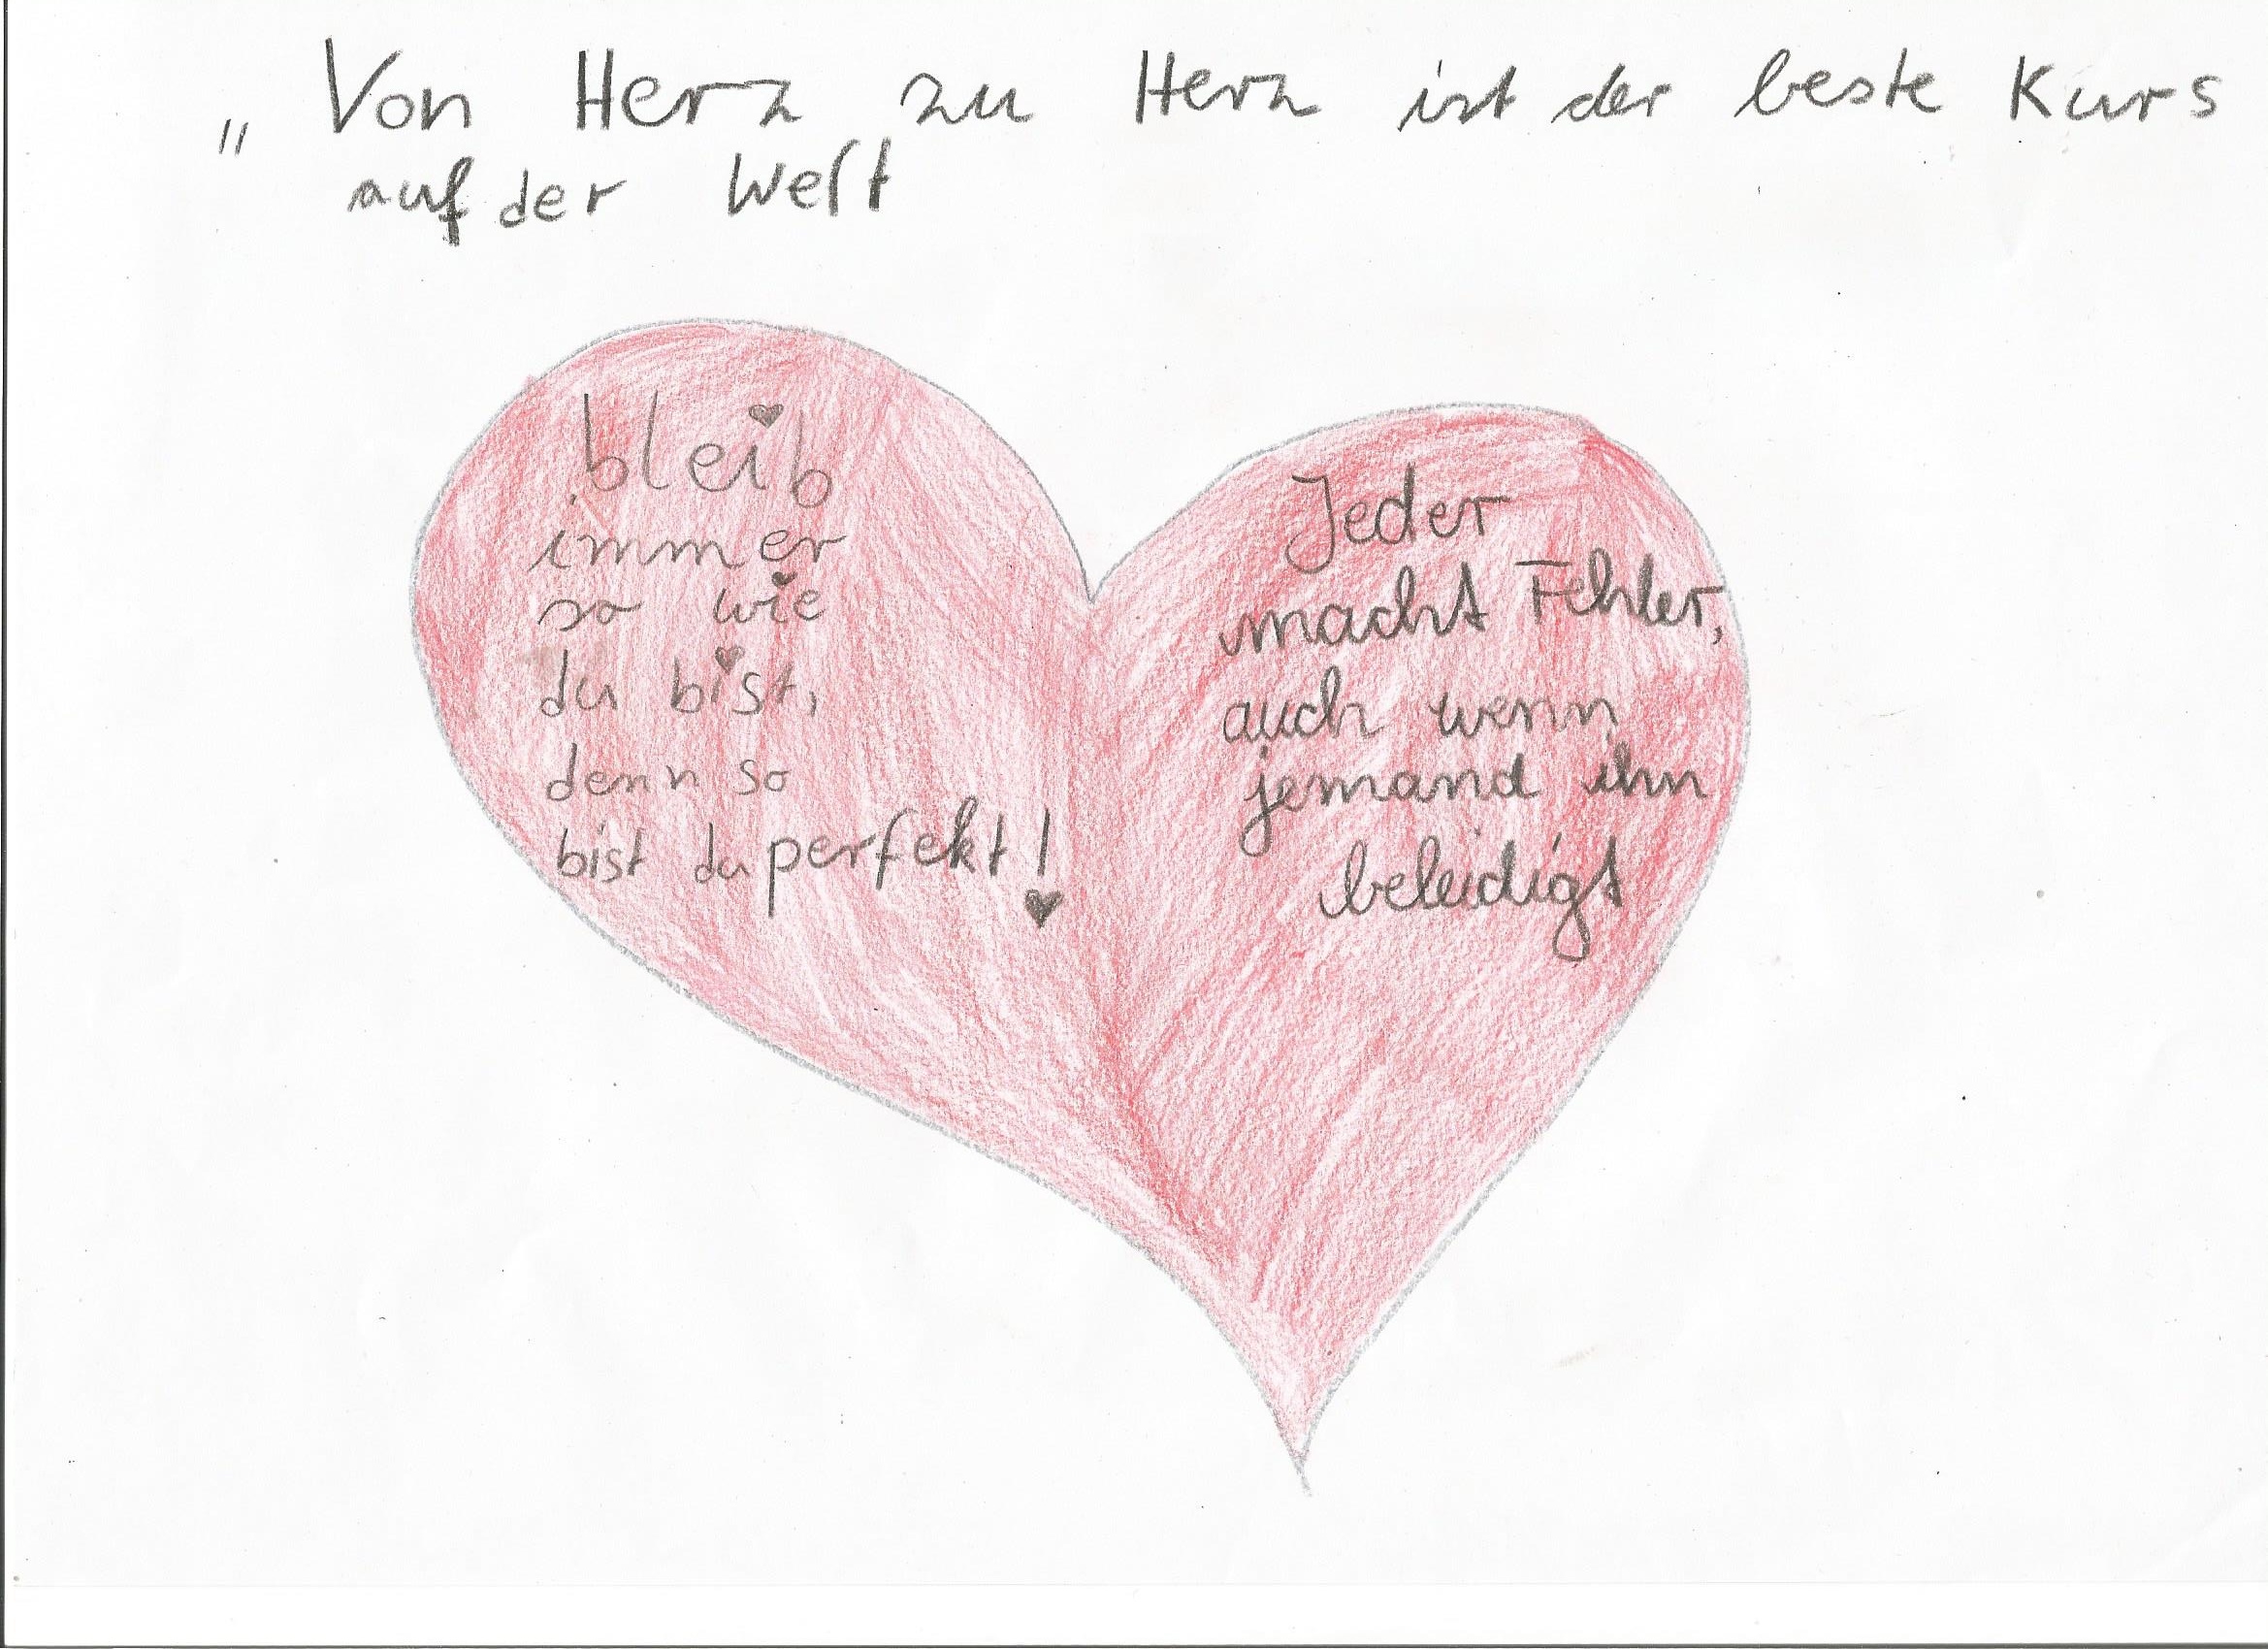 „ Von Herz zu Herz ist der beste Kurs
auf der Welt
bleib
immer
so wie
du bist,
denn so
bist du perfekt!
Jeder
macht Fehler,
auch wenn
jemand ihn
beleidigt